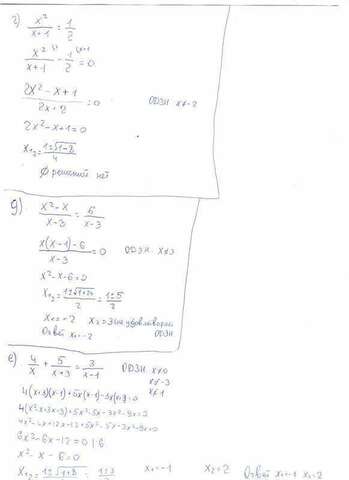 г) x²/(x+1) = 1/2
x²/(x+1) - 1/2 = 0
(2x² - x + 1)/(2x+2) = 0 ОДЗН x≠-2
2x² - x + 1 = 0
x₁,₂ = (1±√1-8)/4
∅ решений нет
д) (x²-x)/(x-3) = 6/(x-3)
(x(x-1)-6)/(x-3) = 0 ОДЗН x≠3
x² - x - 6 = 0
x₁,₂ = (1±√1+24)/2 = (1±5)/2
x₁ = -2 x₂ = 3 не удовлетворяет
Ответ x₁ = -2 ОДЗН
е) 4/x + 5/(x+3) = 3/(x-1) ОДЗН x≠0
x≠-3
x≠1
4(x+3)(x-1)+5x(x-1)-3x(x+3)=0
4(x²-x+3x-3)+5x²-5x-3x²-9x=0
4x²-4x+12x-12+5x²-5x-3x²-9x=0
6x²-6x-12=0 |:6
x² - x - 6 = 0
x₁,₂ = (1±√1+8)/2 = (1±3)/2 x₁ = -1 x₂ = 2 Ответ x₁ = -1 x₂ = 2